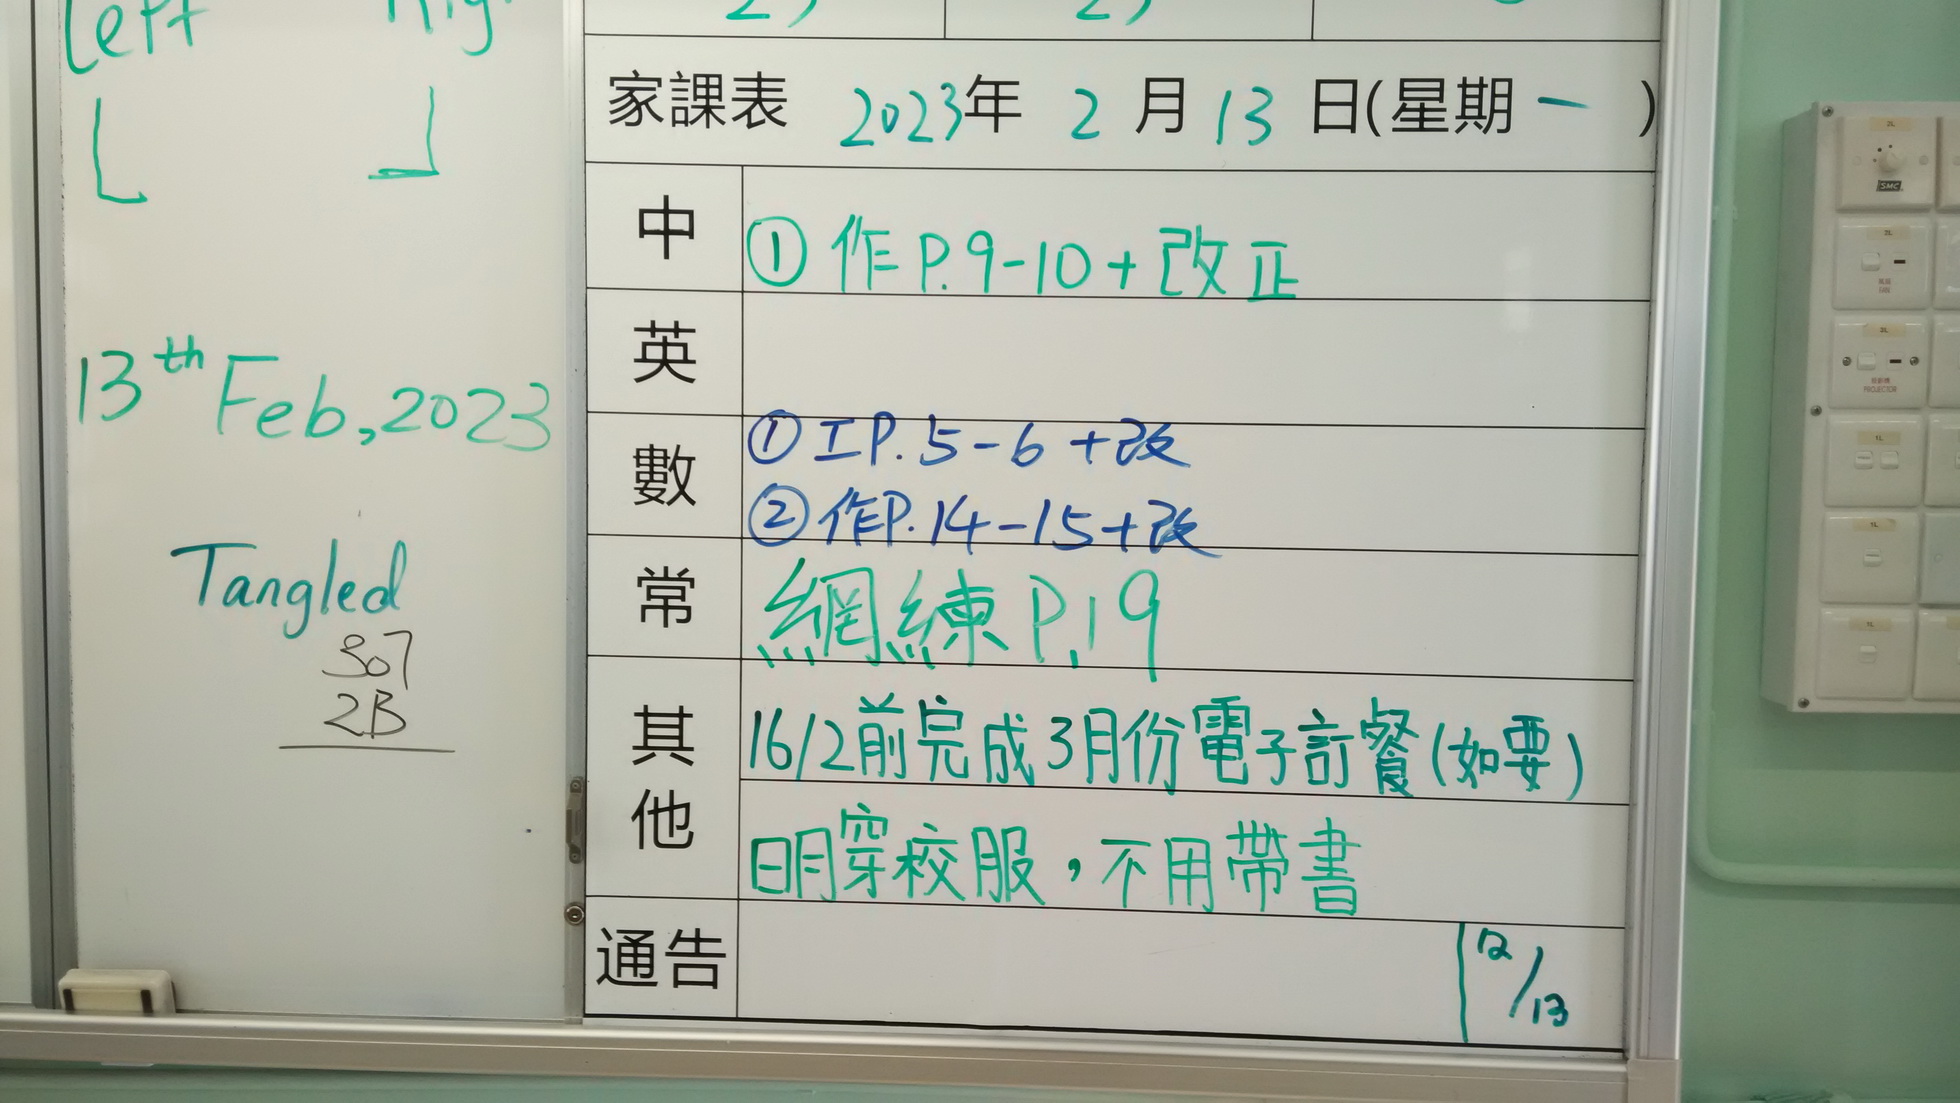 Left
家課表 2023年 2月13日(星期一 )
中 ① 作P.9-10+改正
英
數 ① 工P.5-6+改
② 作P.14-15+改
常 網練P.19
其他 16/2前完成3月份電子訂餐(如要)
明穿校服，不用帶書
通告 12/13
13th Feb,2023
Tangled
307
2B
SMC
FAN
PROJECTOR